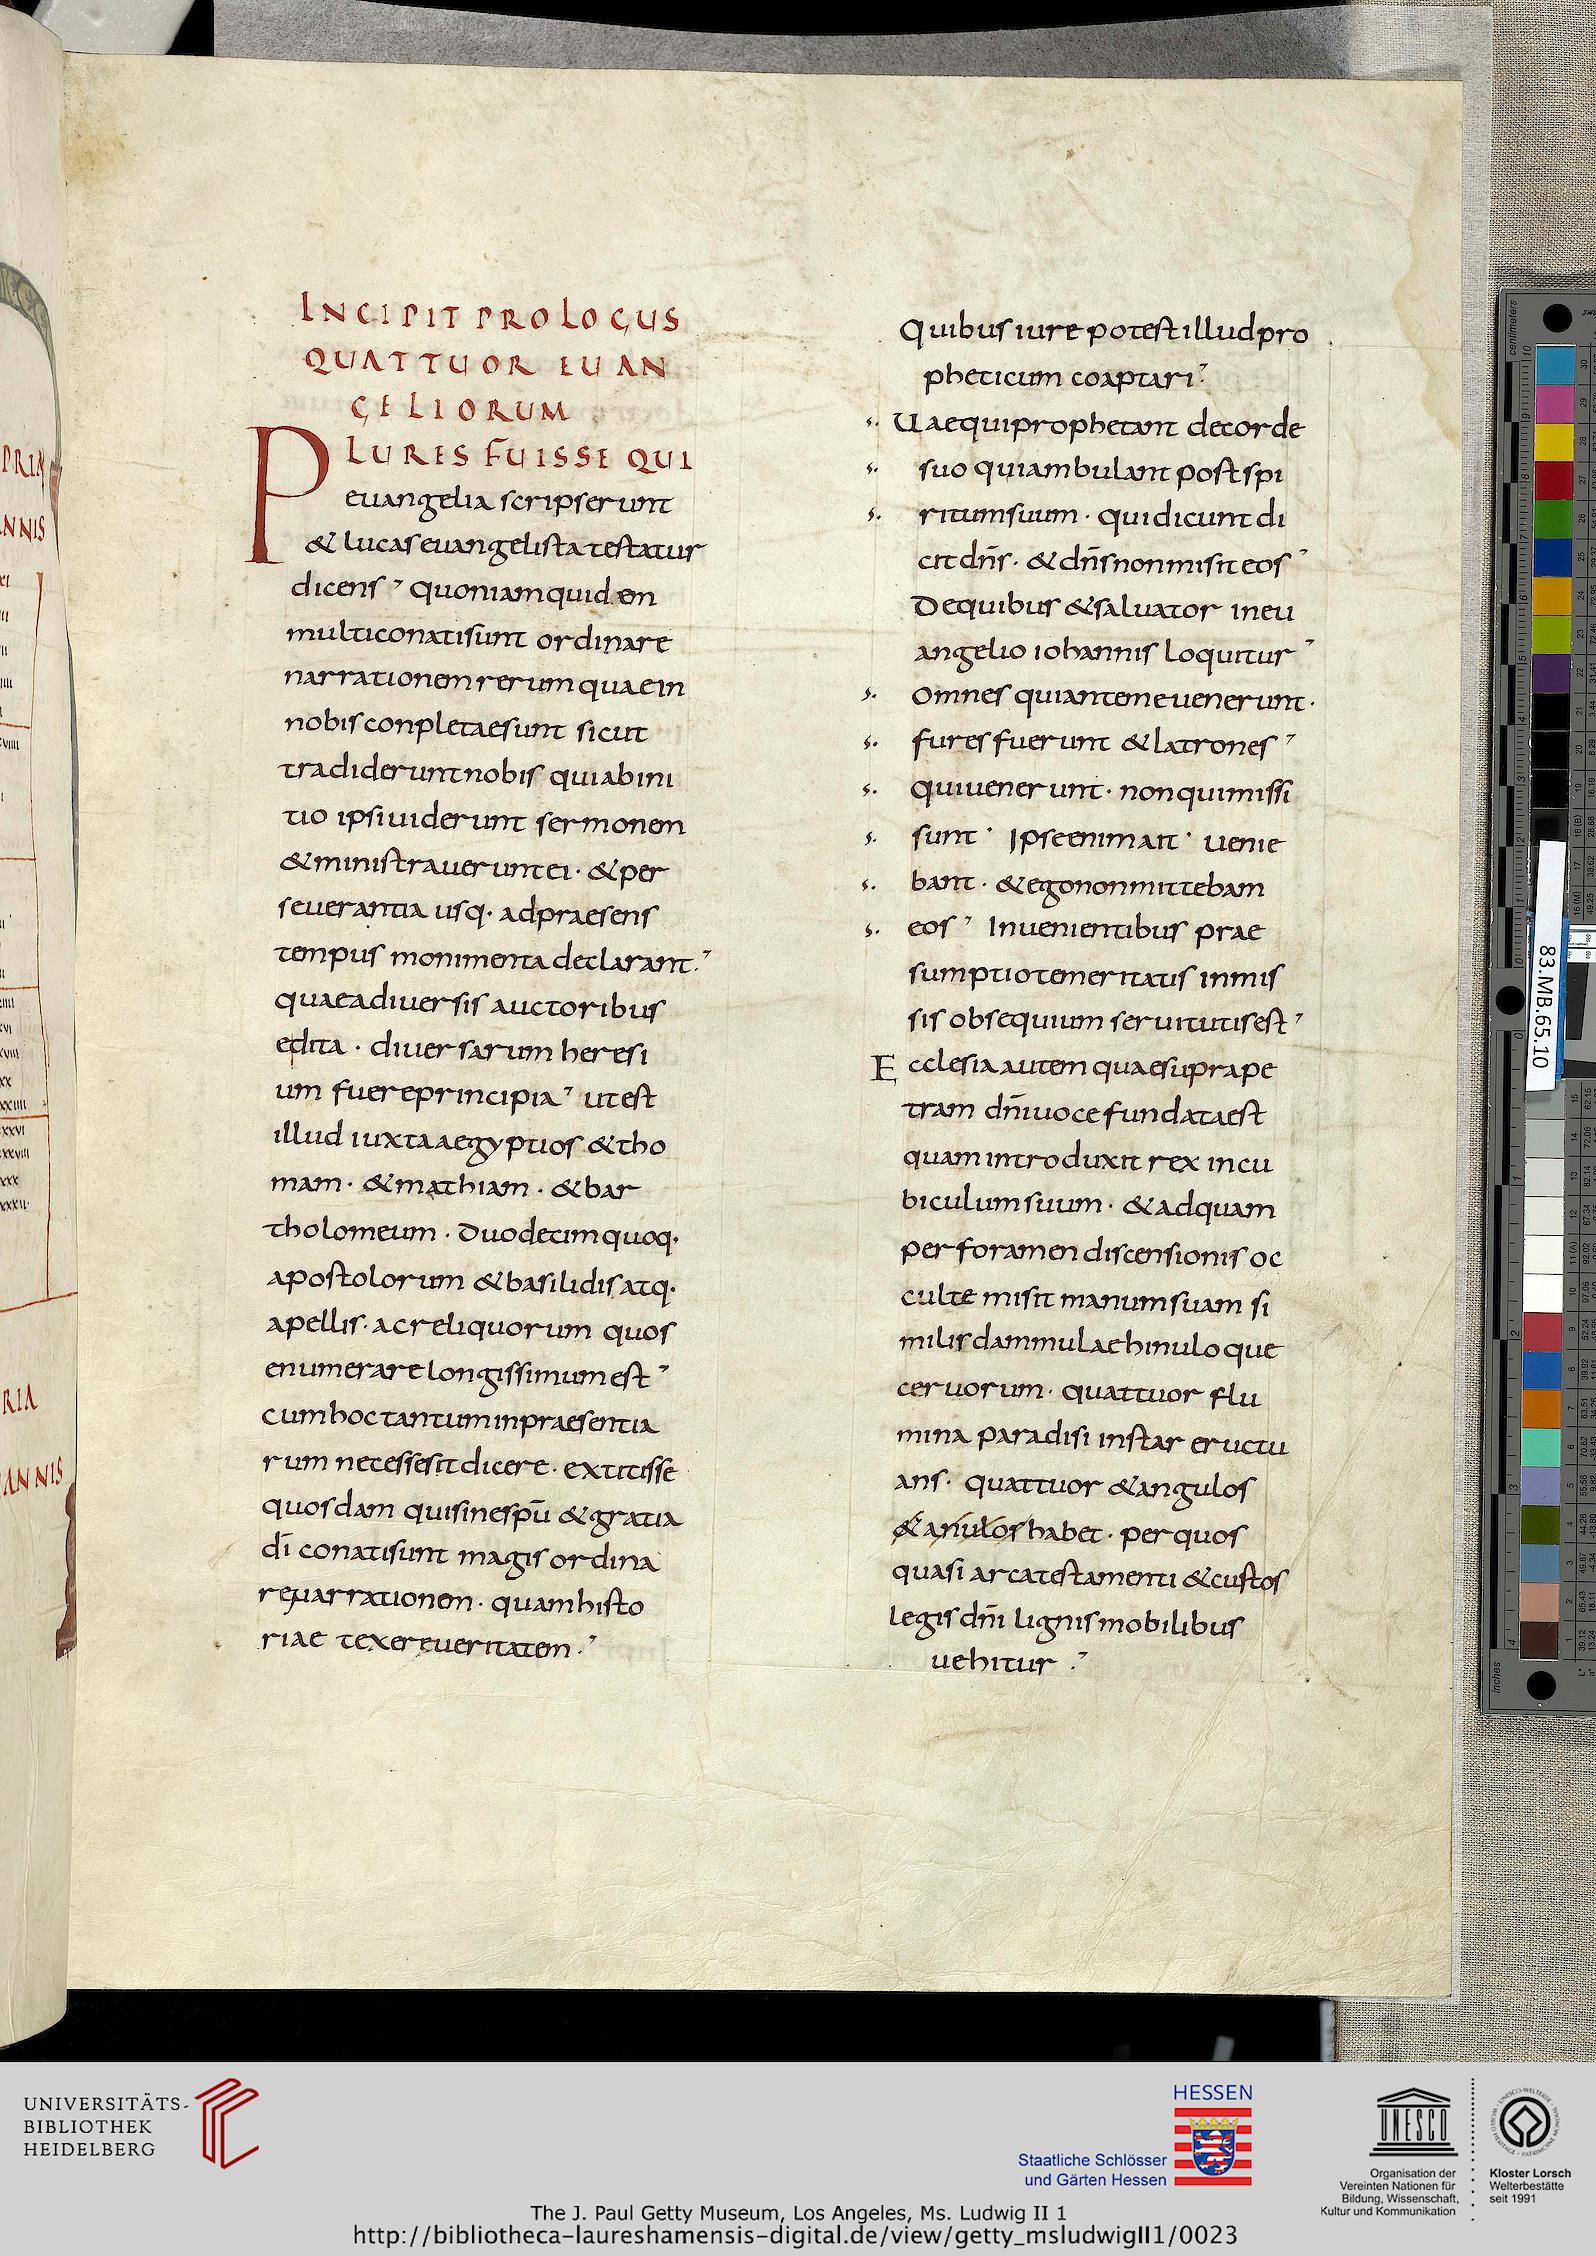 INCIPIT PROLOGUS
QUATTUOR EUAN
GELIORUM
PLURES FUISSE QUI
euangelia scripserunt
& lucas euangelista testatur
dicens quoniam quidem
multi conati sunt ordinare
narrationem rerum quae in
nobis conpletae sunt sicut
tradiderunt nobis qui ab ini
tio ipsi uiderunt sermonem
& ministrauerunt ei · & per
seuerantia usq· ad praesens
tempus monimenta declarant
quae a diuersis auctoribus
edita · diuersarum heresi
um fuere principia ut est
illud iuxta aegyptios & tho
mam · & mathiam · & bar
tholomeum · Duodecim quoq·
apostolorum & basilidis atq·
apellis · ac reliquorum quos
enumerare longissimum est
cum hoc tantum in praesentia
rum necesse sit dicere · extitisse
quosdam qui sine spū & gratia
dī conati sunt magis ordina
re narrationem · quam histo
riae texere ueritatem
Quibus iure potest illud pro
pheticum coaptari
s. Uae qui prophetant de corde
s. suo qui ambulant post spi
s. ritum suum · qui dicunt di
cit dn̄s · & dn̄s non misit eos
De quibus & saluator in eu
angelio iohannis loquitur
s. omnes qui ante me uenerunt ·
s. fures fuerunt & latrones
s. qui uenerunt · non qui missi
s. sunt Ipse enim ait uenie
s. bant · & ego non mittebam
s. eos In uenientibus prae
sumptio temeritatis in mis
sis obsequium seruitutis est
Ecclesia autem quae supra pe
tram dn̄i uoce fundata est
quam introduxit rex in cu
biculum suum · & ad quam
per foramen discensionis oc
culte misit manum suam si
milis dammulae hinuloque
ceruorum · quattuor flu
mina paradisi instar eructu
ans · quattuor & angulos
& anulos habet · per quos
quasi arca testamenti & custos
legis dn̄i lignis mobilibus
uehitur
PRIA
ANNIS
RIA
ANNIS
83.MB.65.10
centimeters
inches
UNIVERSITÄTS-
BIBLIOTHEK
HEIDELBERG
HESSEN
Staatliche Schlösser
und Gärten Hessen
UNESCO
Organisation der
Vereinten Nationen für
Bildung, Wissenschaft,
Kultur und Kommunikation
Kloster Lorsch
Welterbestätte
seit 1991
The J. Paul Getty Museum, Los Angeles, Ms. Ludwig II 1
http://bibliotheca-laureshamensis-digital.de/view/getty_msludwigII1/0023